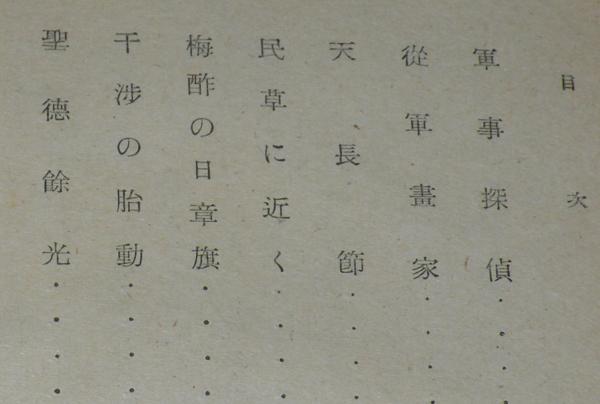 目次
軍事探偵････
從軍畫家････
天長節････
民草に近く････
梅酢の日章旗････
干渉の胎動････
聖德餘光････